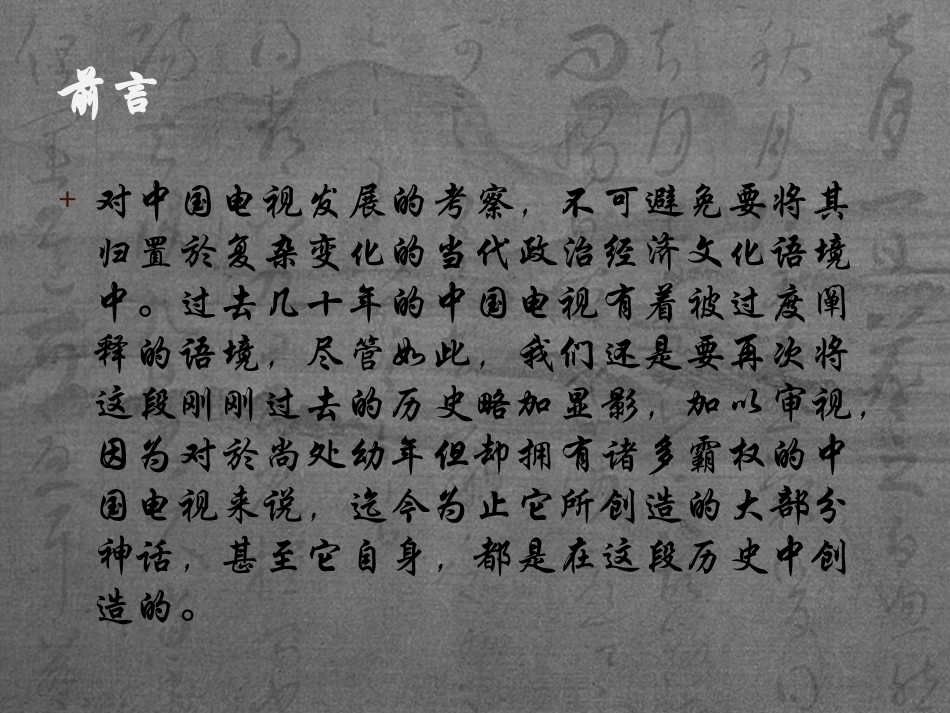 前言
+ 对中国电视发展的考察，不可避免要将其
归置於复杂变化的当代政治经济文化语境
中。过去几十年的中国电视有着被过度阐
释的语境，尽管如此，我们还是要再次将
这段刚刚过去的历史略加显影，加以审视，
因为对於尚处幼年但却拥有诸多霸权的中
国电视来说，迄今为止它所创造的大部分
神话，甚至它自身，都是在这段历史中创
造的。